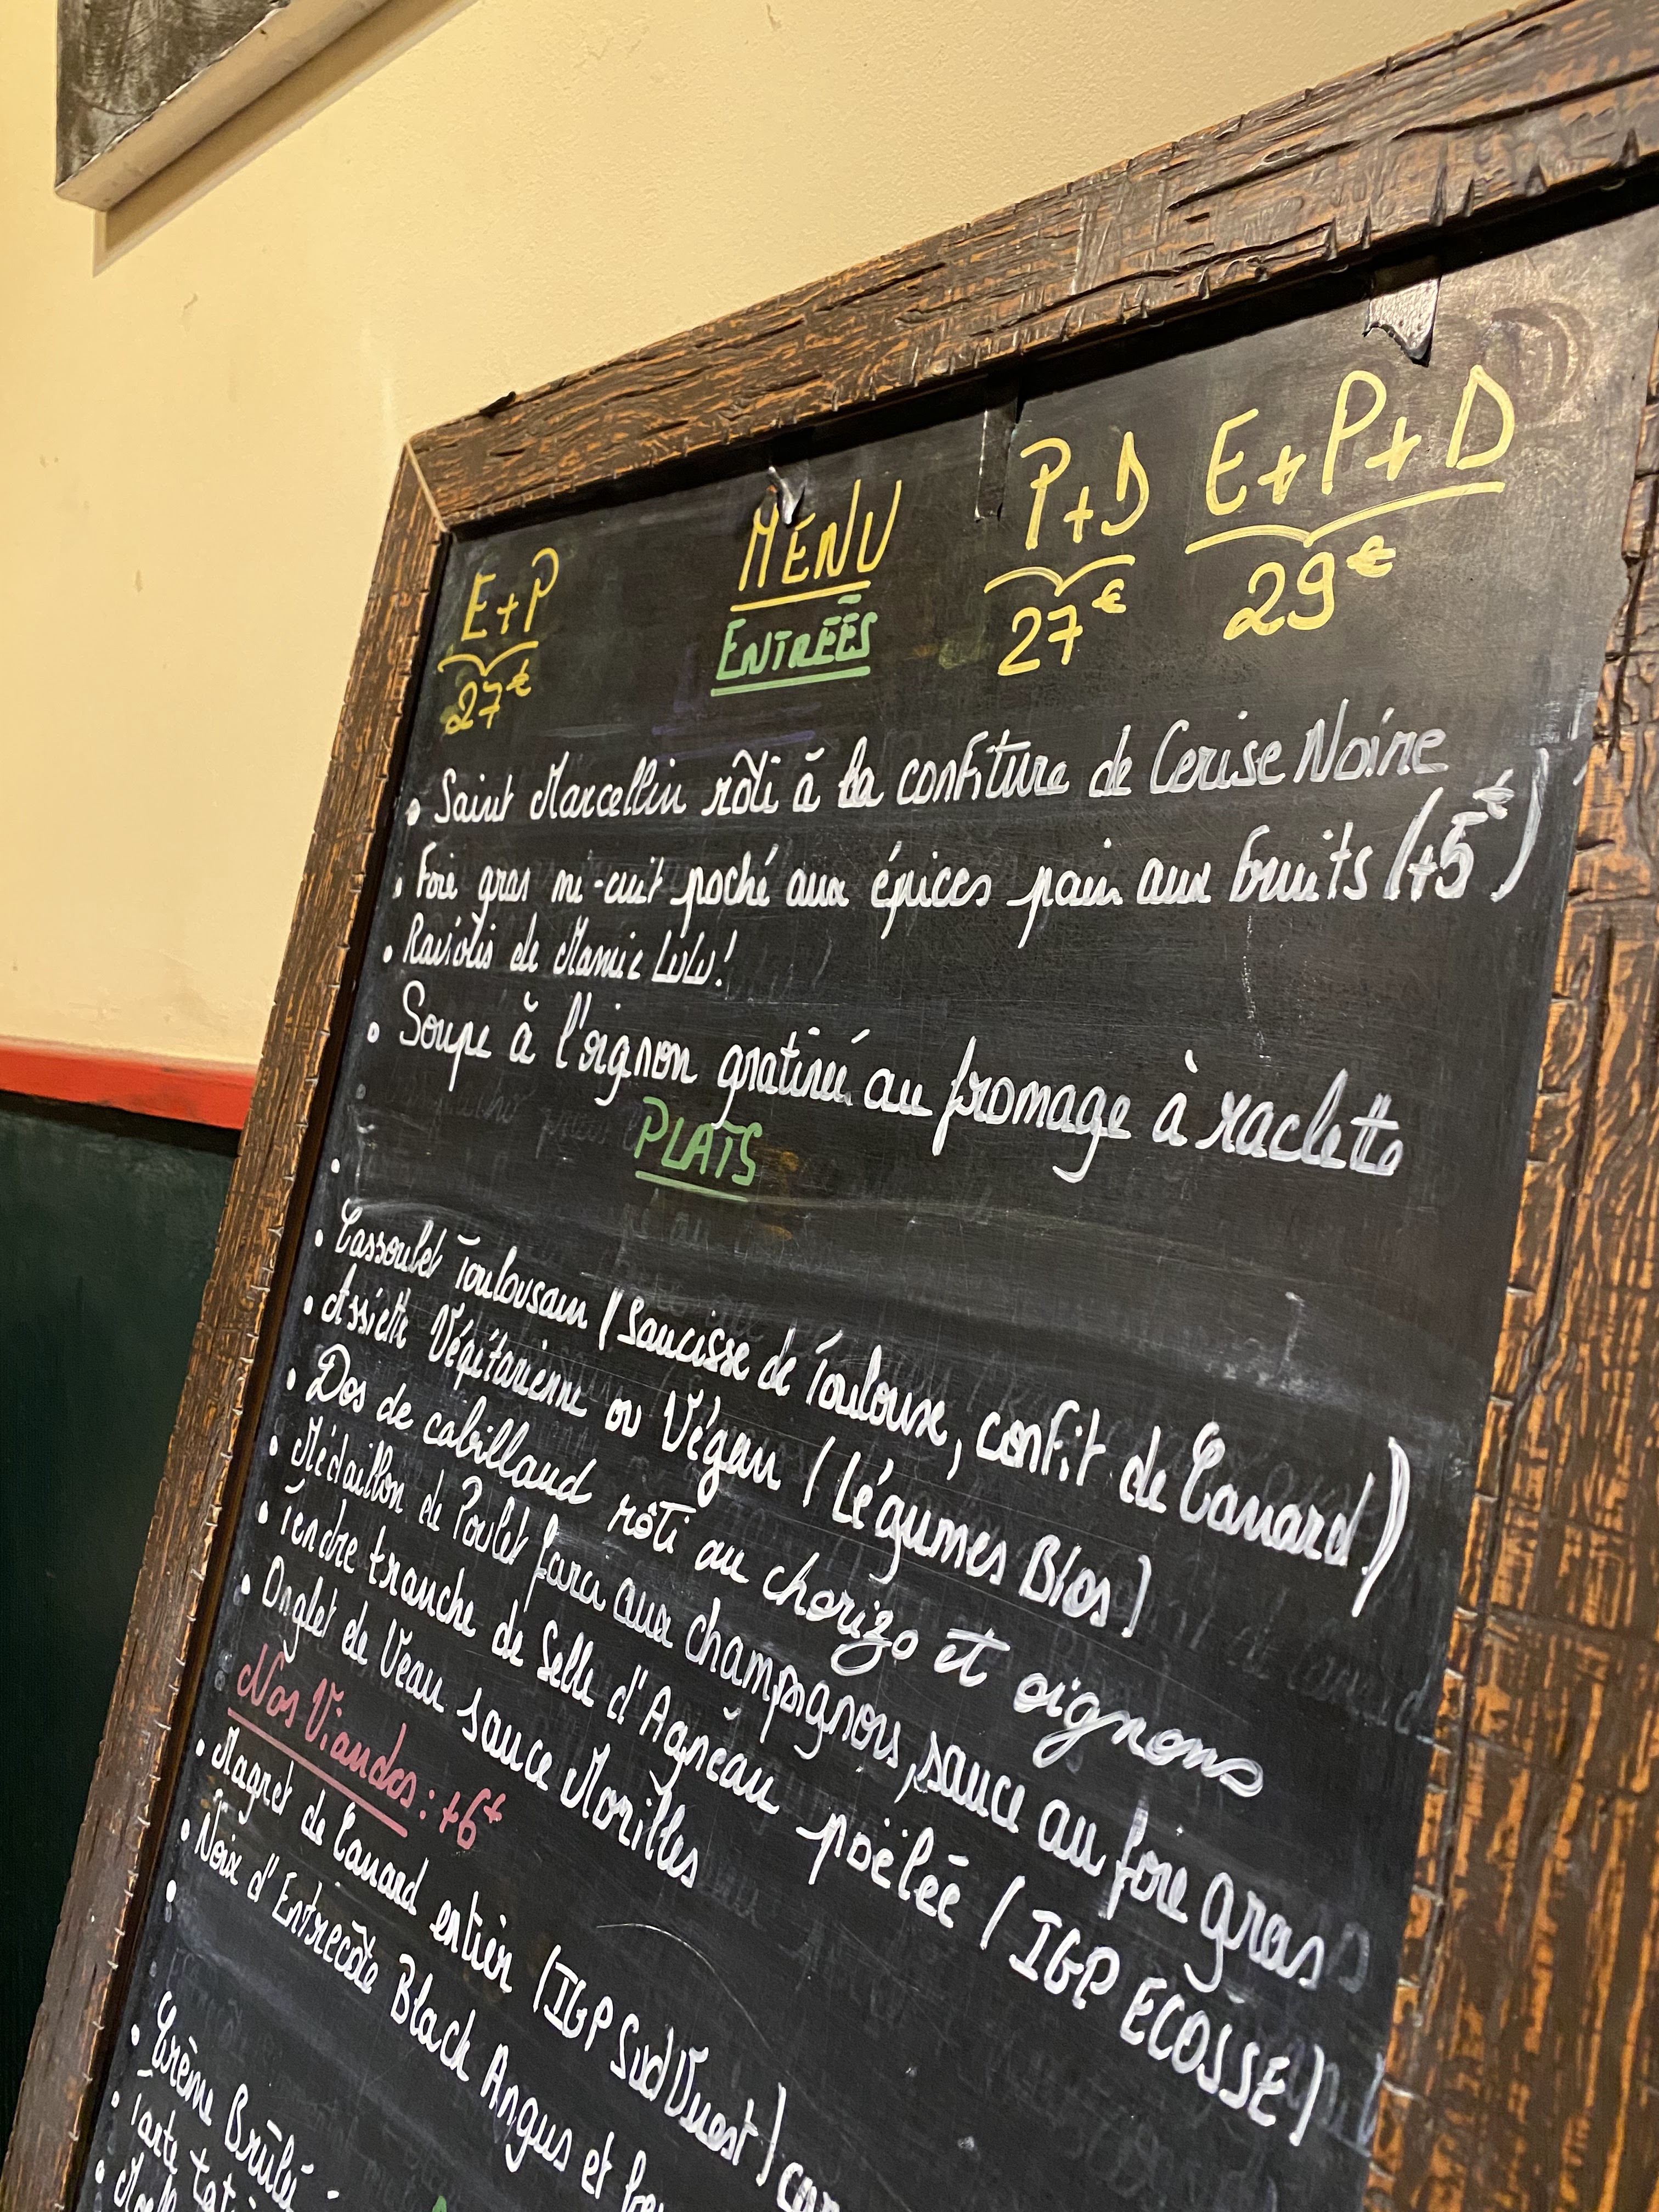 E+P MENU P+D E+P+D
27€ ENTRÉES 27€ 29€
• Saint Marcellin rôti à la confiture de Cerise Noire
• Foie gras mi-cuit poché aux épices pain aux fruits (+5€)
• Raviolis de Mamie Lulu!
• Soupe à l'oignon gratinée au fromage à raclette
PLATS
• Cassoulet Toulousain (Saucisse de Toulouse, confit de Canard)
• Assiette Végétarienne ou Végan (Légumes Bios)
• Dos de cabillaud rôti au chorizo et oignons
• Médaillon de Poulet farci aux champignons, sauce au foie gras
• Tendre tranche de Selle d'Agneau poëlée (IGP ECOSSE)
• Onglet de Veau sauce Morilles
Nos Viandes: +6€
• Magret de Canard entier (IGP Sud Ouest)
• Noix d'Entrecôte Black Angus et
• Crème Brûlée
• Tarte